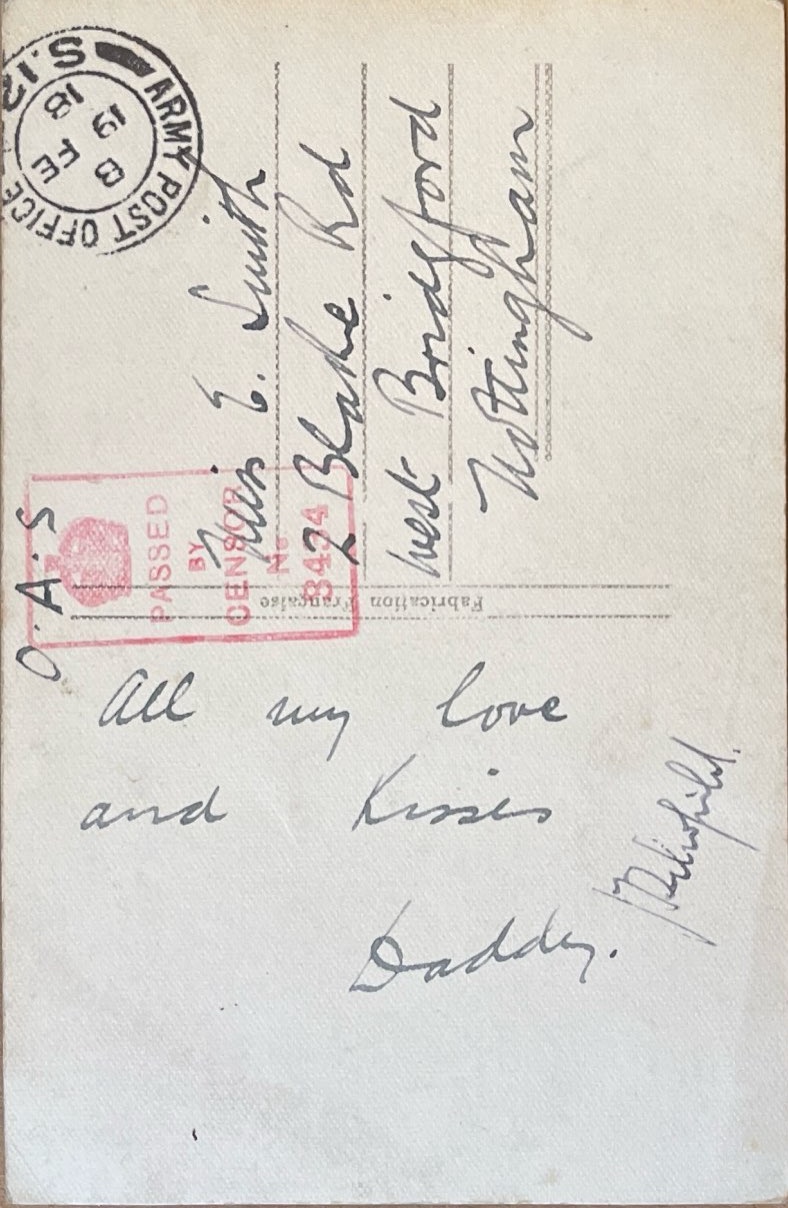 ARMY POST OFFICE S.12
8 FE
19
18
O.A.S
PASSED
BY
CENSOR
No
3434
Miss E. Smith
2 Blake Rd
West Bridgford
Nottingham
Fabrication Française
All my love
and Kisses
Daddy.